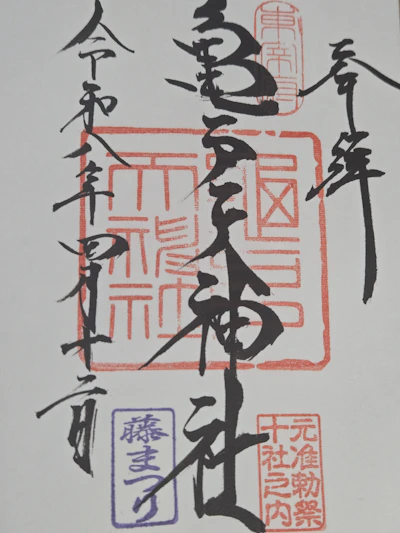 奉拝
東宰府
元准勅祭
十社之内
亀戸天神社
龜戸
天神社
令和八年四月十二日
藤まつり